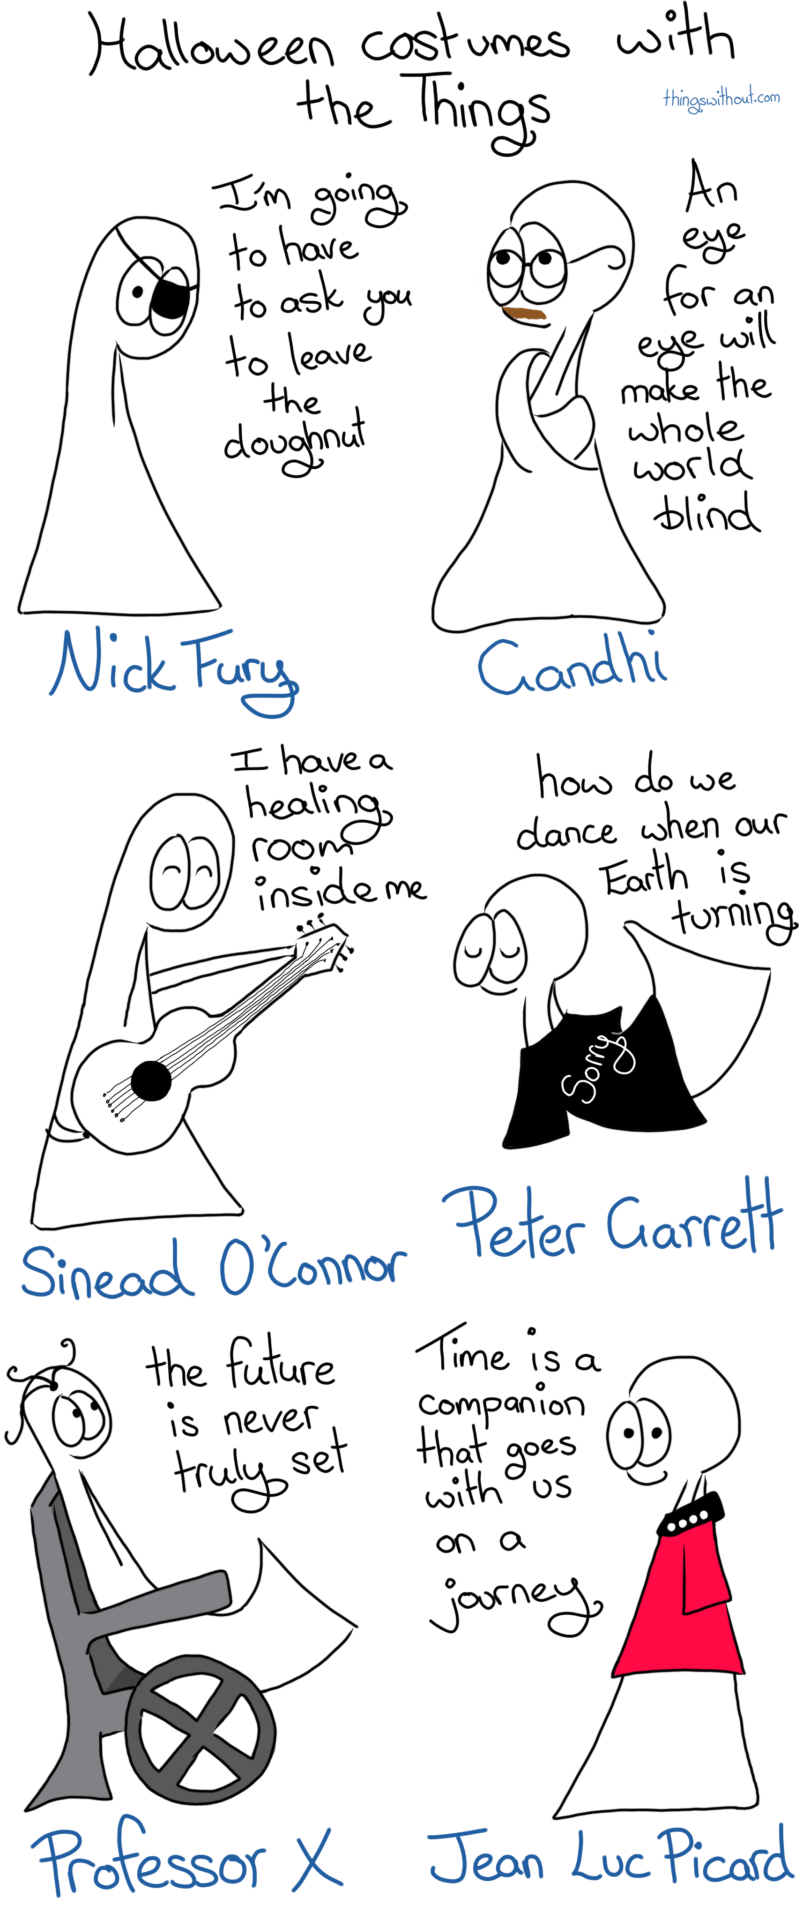 Halloween costumes with
the Things
thingswithout.com
I'm going
to have
to ask you
to leave
the
doughnut
An
eye
for an
eye will
make the
whole
world
blind
Nick Fury
Gandhi
I have a
healing
room
inside me
how do we
dance when our
Earth is
turning
Sorry
Sinead O'Connor
Peter Garrett
the future
is never
truly set
Time is a
companion
that goes
with us
on a
journey
Professor X
Jean Luc Picard